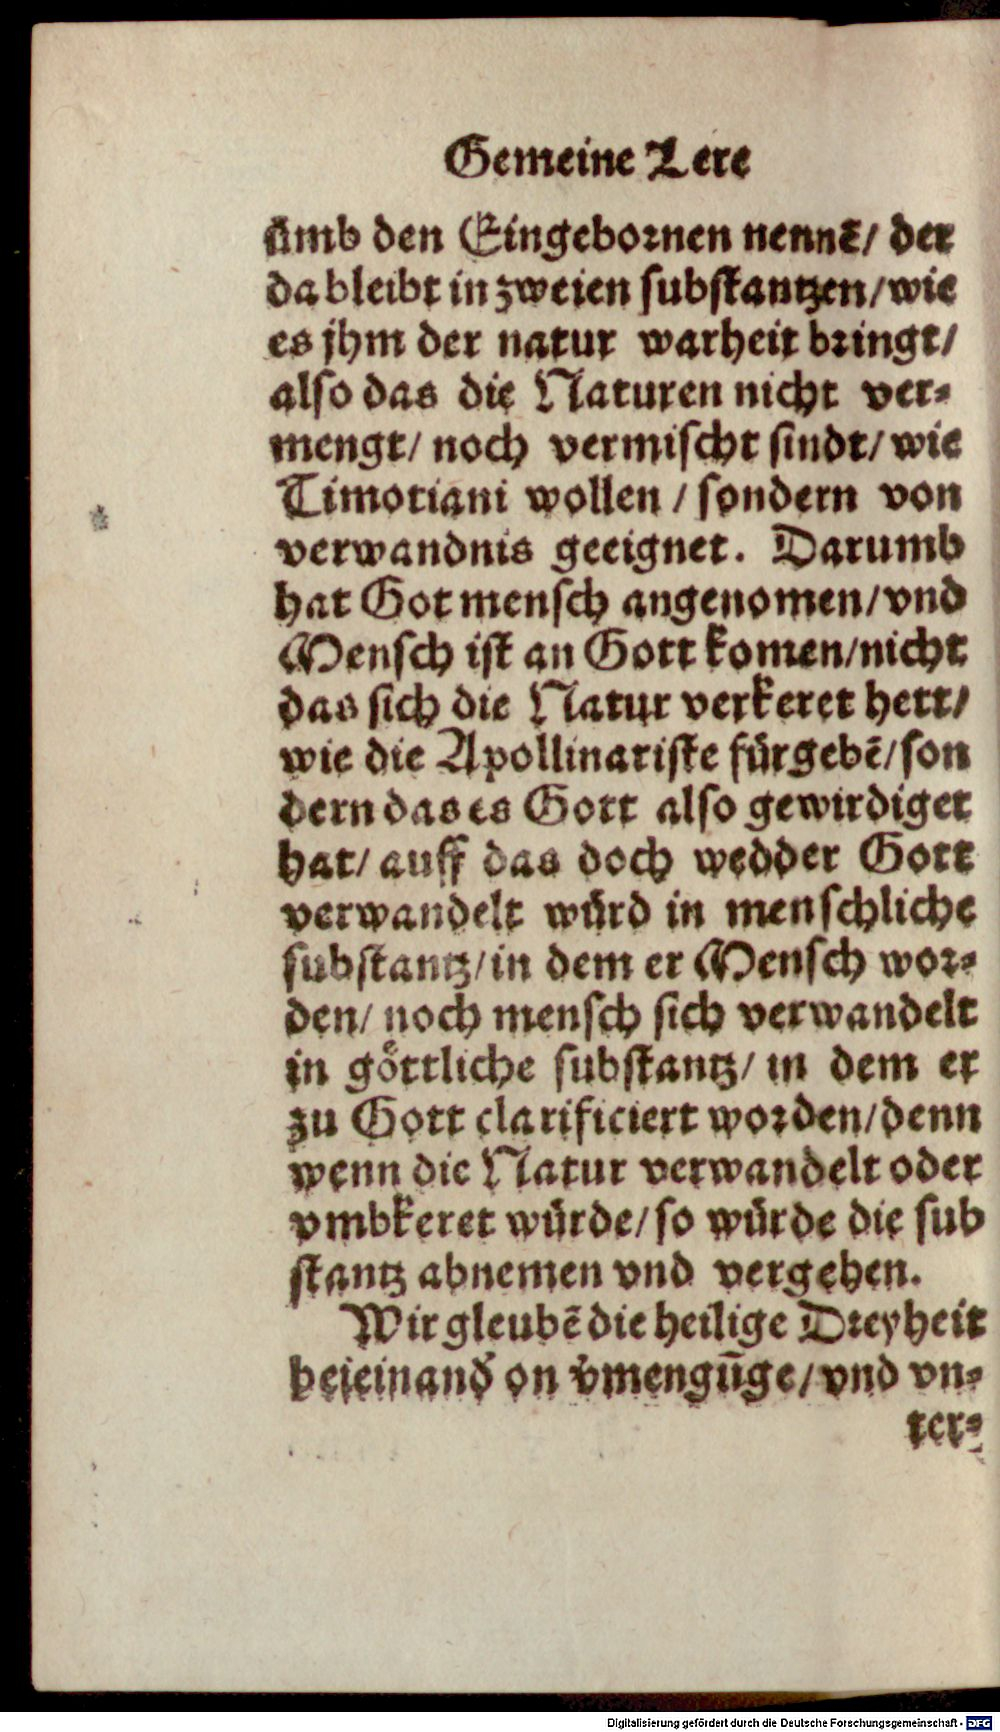 Gemeine Lere
ümb den Eingebornen nennē/ der
da bleibt in zweien substantzen/wie
es jhm der natur warheit bringt/
also das die Naturen nicht ver⸗
mengt/ noch vermischt sindt/ wie
Timotiani wollen / sondern von
verwandnis geeignet. Darumb
hat Got mensch angenomen/vnd
Mensch ist an Gott komen/nicht
das sich die Natur verkeret hett/
wie die Apollinariste fürgebē/son
dern das es Gott also gewirdiget
hat/ auff das doch wedder Gott
verwandelt würd in menschliche
substantz/in dem er Mensch wor⸗
den/ noch mensch sich verwandelt
in göttliche substantz/ in dem er
zu Gott clarificiert worden/denn
wenn die Natur verwandelt oder
vmbkeret würde/so würde die sub
stantz abnemen vnd vergehen.
Wir gleubē die heilige Dreyheit
beieinand' on v'mengūge/vnd vn⸗
ter⸗
Digitalisierung gefördert durch die Deutsche Forschungsgemeinschaft - DFG